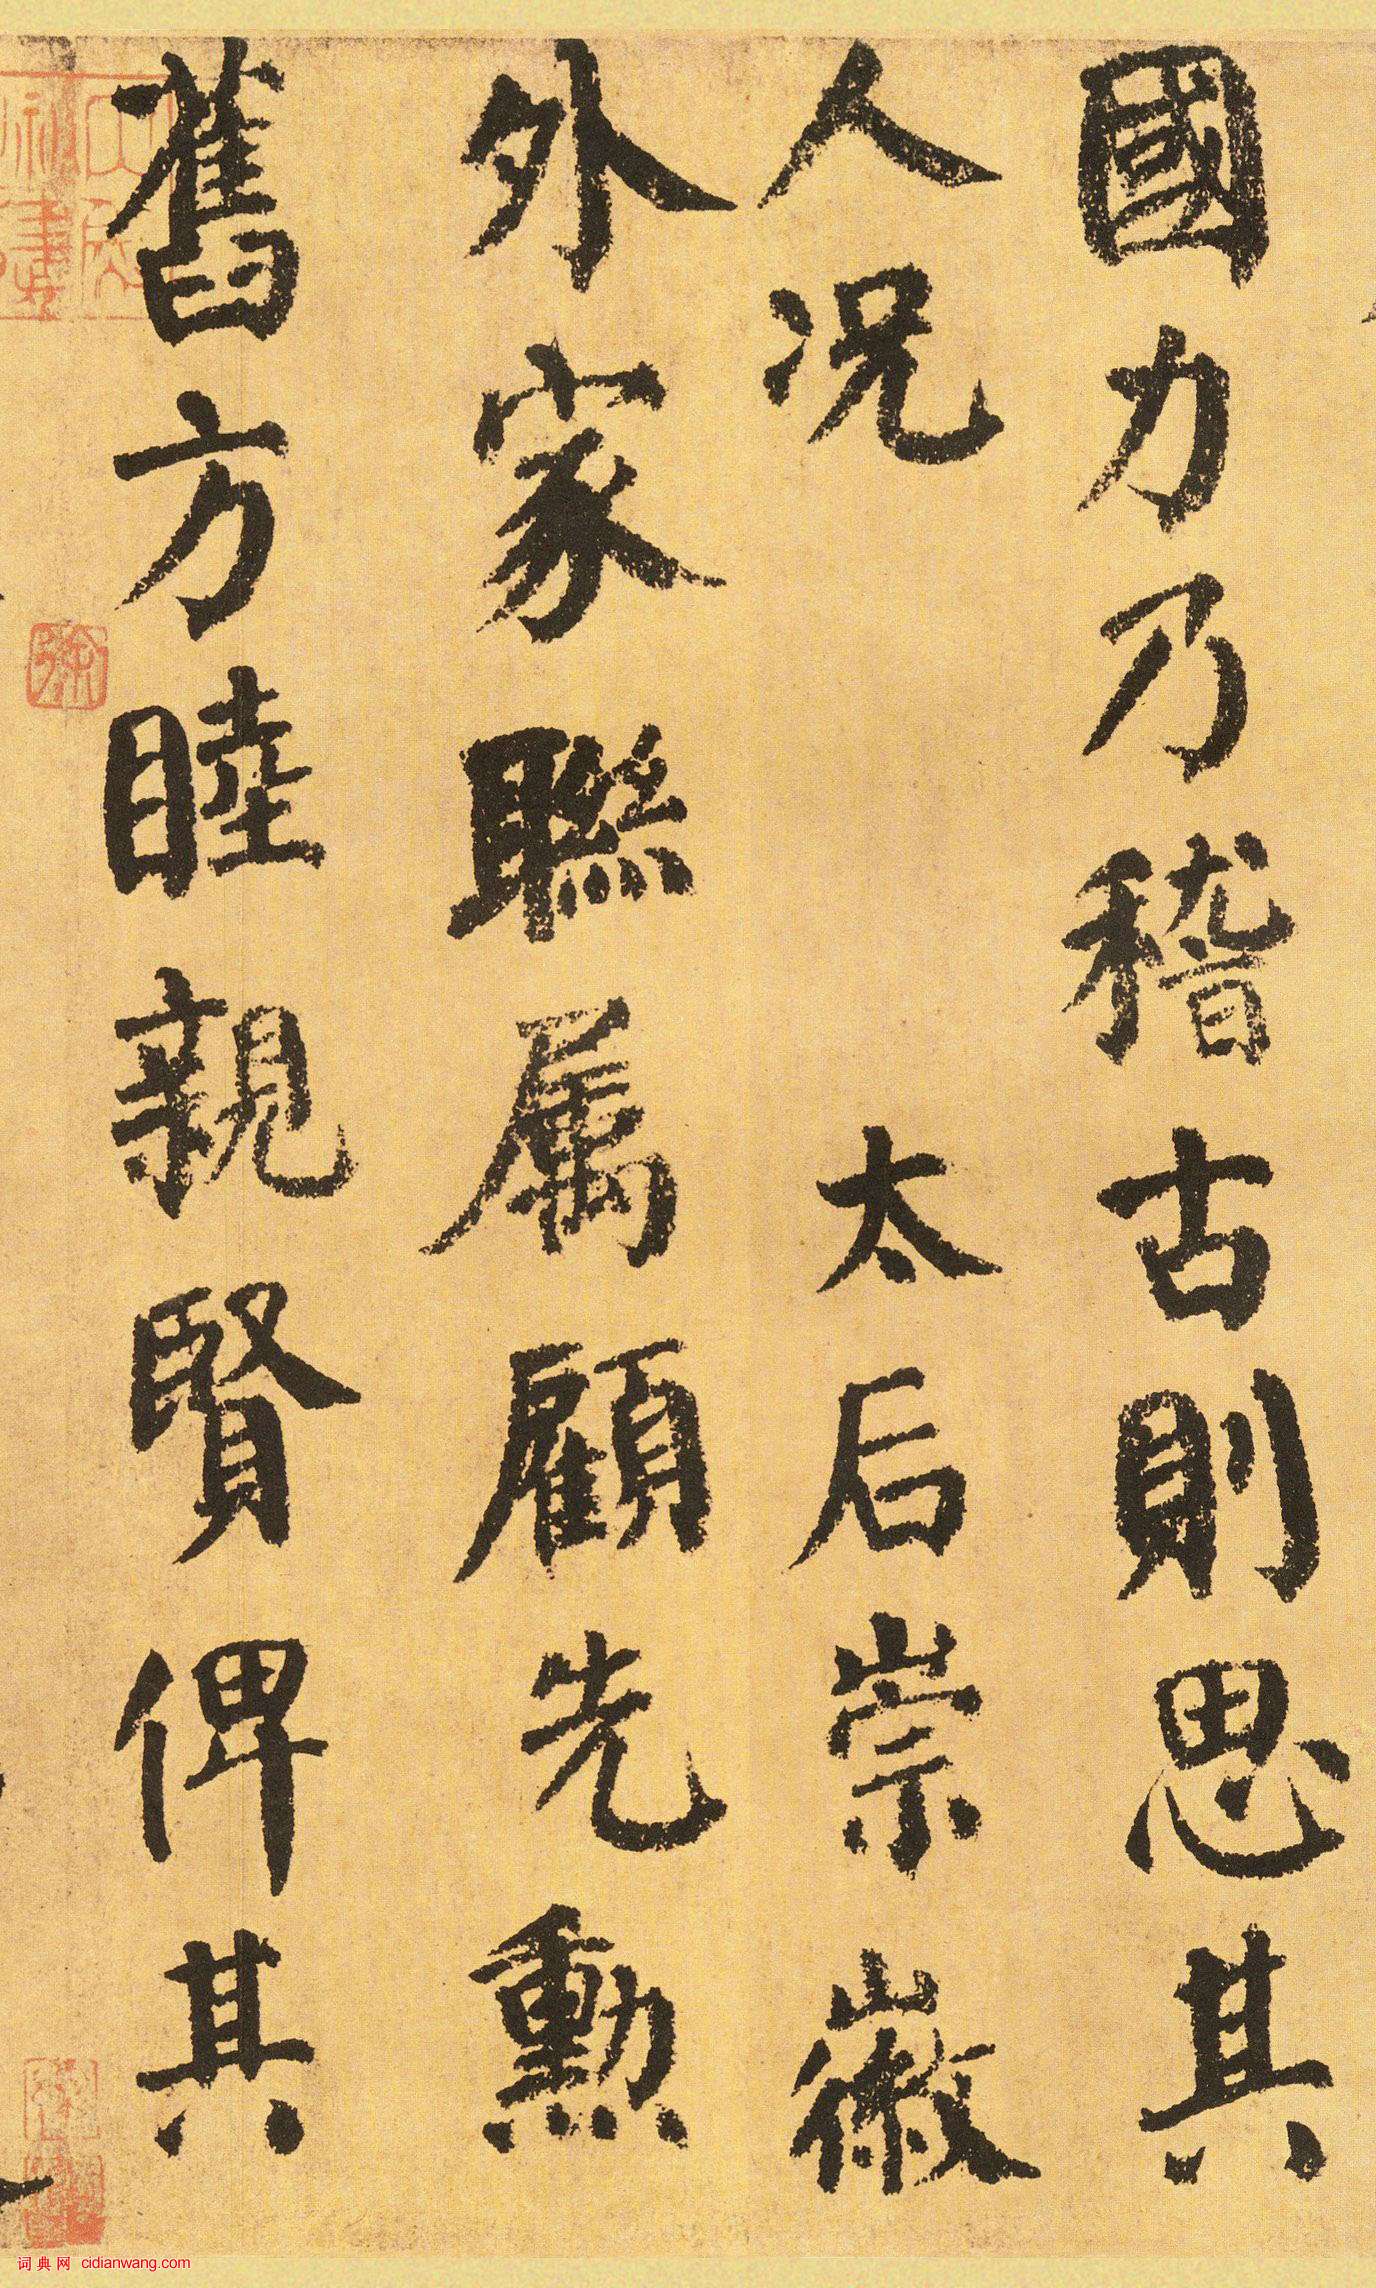 國力乃稽古則思其
人况 太后崇徽
外家聯属顧先勳
舊方睦親賢俾其
词典网 cidianwang.com